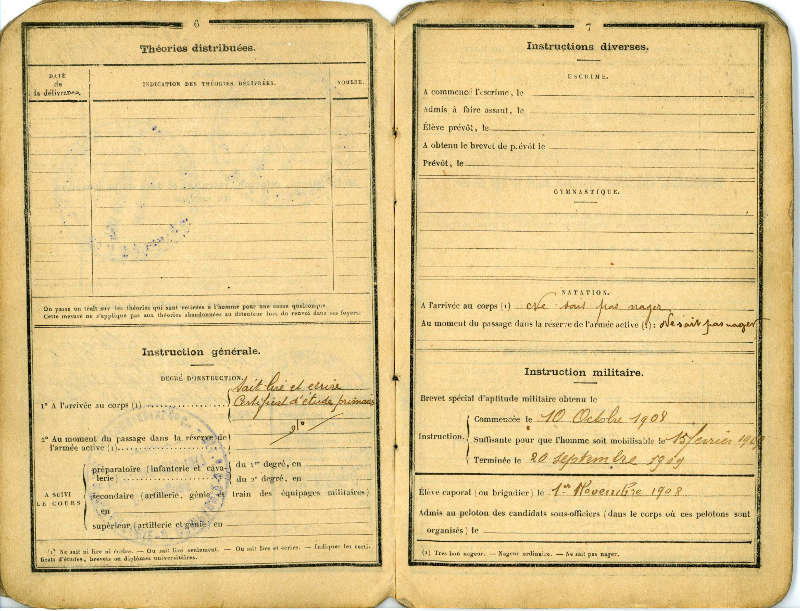 6
Théories distribuées.
DATE
de
la délivrance
INDICATION DES THÉORIES DÉLIVRÉES.
On passe un trait sur les théories qui sont retirées à l'homme pour une cause quelconque.
Cette mesure ne s'applique pas aux théories abandonnées au détenteur lors du renvoi dans ses foyers.
Instruction générale.
DEGRÉ D'INSTRUCTION.
1° A l'arrivée au corps (1)
Sait lire et écrire
Certificat d'étude primaire
2° Au moment du passage dans la réserve de
l'armée active (1)
A SUIVI
LE COURS
préparatoire (infanterie et cava-
lerie)
du 1er degré, en
du 2e degré, en
secondaire (artillerie, génie et train des équipages militaires)
en
supérieur (artillerie et génie) en
(1) Ne sait ni lire ni écrire. — Ou sait lire seulement. — Ou sait lire et écrire. — Indiquer les certi-
ficats d'études, brevets ou diplômes universitaires.
7
Instructions diverses.
ESCRIME.
A commencé l'escrime, le
Admis à faire assaut, le
Élève prévôt, le
A obtenu le brevet de prévôt le
Prévôt, le
GYMNASTIQUE.
NATATION.
A l'arrivée au corps (1) Ne sait pas nager
Au moment du passage dans la réserve de l'armée active (1) : Ne sait pas nager
Instruction militaire.
Brevet spécial d'aptitude militaire obtenu le
Instruction.
Commencée le 10 Octobre 1908
Suffisante pour que l'homme soit mobilisable le 15 février 1909
Terminée le 20 septembre 1909
Élève caporal (ou brigadier) le 1er Novembre 1908
Admis au peloton des candidats sous-officiers (dans le corps où ces pelotons sont
organisés) le
(1) Très bon nageur. — Nageur ordinaire. — Ne sait pas nager.